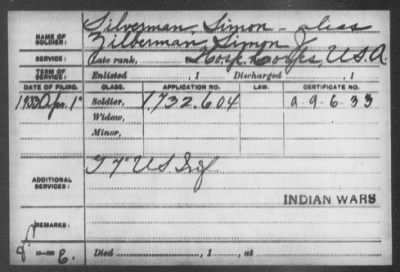 NAME OF SOLDIER: Silverman, Simon - alias
Zilberman, Simon J
SERVICE: Late rank, Hosp. Corps, U.S.A.
TERM OF SERVICE: Enlisted , 1 Discharged , 1
DATE OF FILING. CLASS. APPLICATION NO. LAW. CERTIFICATE NO.
1933 Apr. 1 Soldier, 1732.604 a-9-6-33
Widow,
Minor,
ADDITIONAL SERVICES: US Inf
INDIAN WARS
REMARKS:
Died , 1 , at